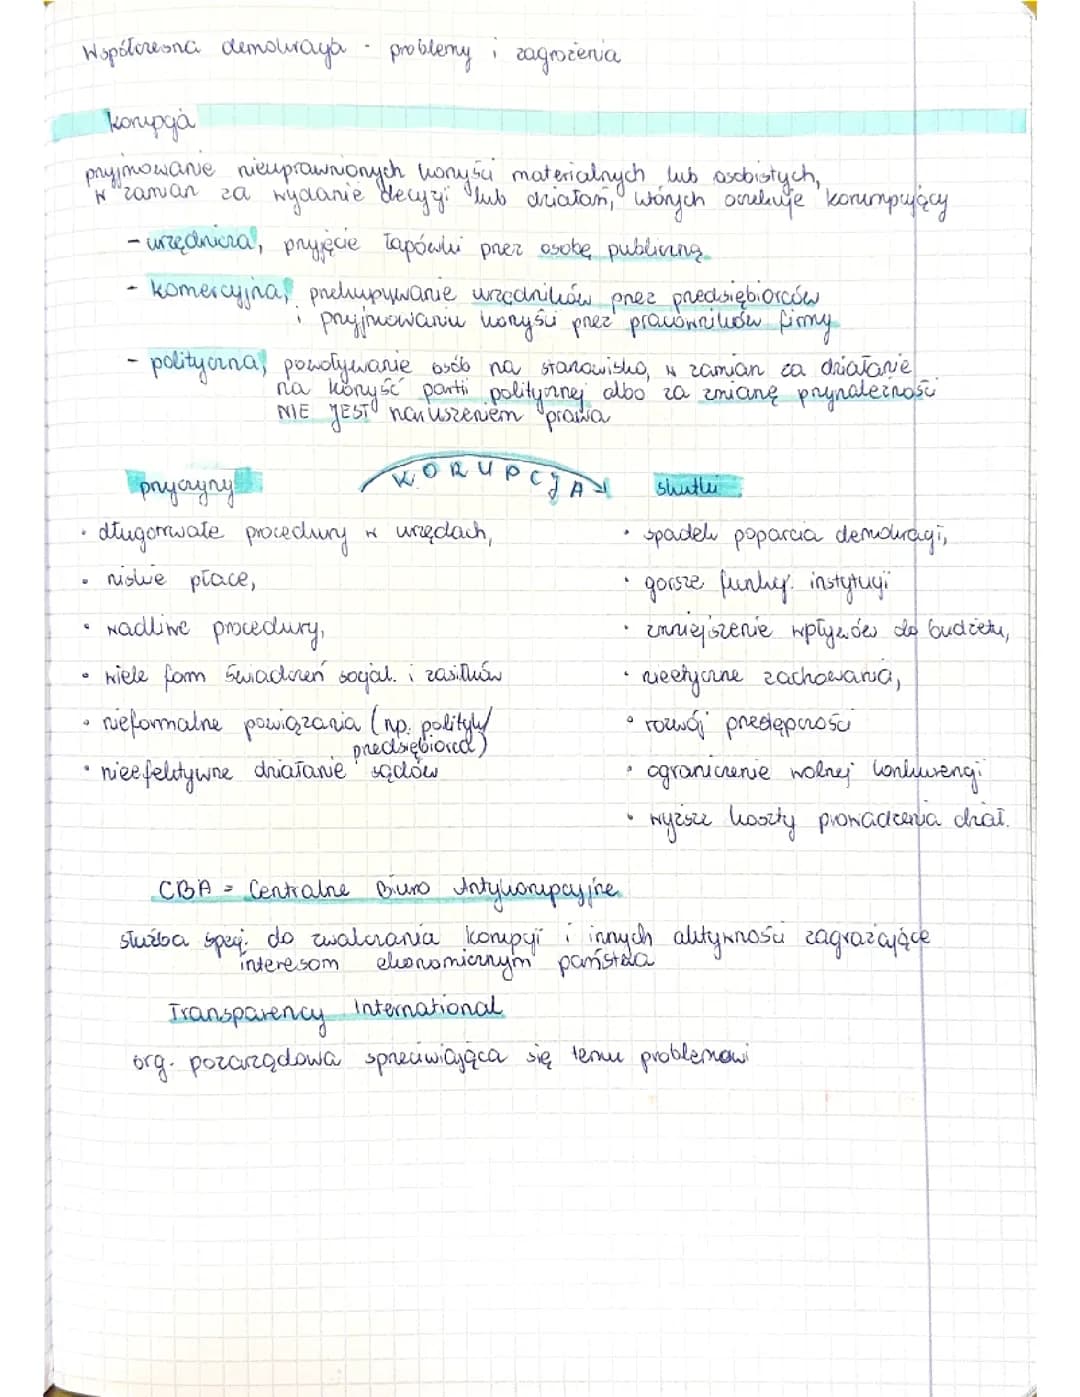 Współczesna demokracja - problemy i zagrożenia
korupcja
przyjmowanie nieuprawnionych korzyści materialnych lub osobistych,
w zamian za wydanie decyzji lub działań, których oczekuje korumpujący
- urzędnicza, przyjęcie łapówki przez osobę publiczną
- komercyjna, przekupywanie urzędników przez przedsiębiorców
i przyjmowaniu korzyści przez pracowników firmy
- polityczna, powoływanie osób na stanowisko, w zamian za działanie
na korzyść partii politycznej albo za zmianę przynależności
NIE JEST naruszeniem prawa
przyczyny KORUPCJA skutki
• długotrwałe procedury w urzędach,
• niskie płace,
• wadliwe procedury,
• wiele form świadczeń socjal. i zasiłków
• nieformalne powiązania (np. polityk/
przedsiębiorca)
• nieefektywne działanie sądów
• spadek poparcia demokracji,
• gorsze funkcj. instytucji
• zmniejszenie wpływów do budżetu,
• nieetyczne zachowania,
• rozwój przestępczości
• ograniczenie wolnej konkurencji
• wyższe koszty prowadzenia dział.
CBA = Centralne Biuro Antykorupcyjne
służba specj. do zwalczania korupcji i innych aktywności zagrażające
interesom ekonomicznym państwa
Transparency International
org. pozarządowa sprzeciwiająca się temu problemowi